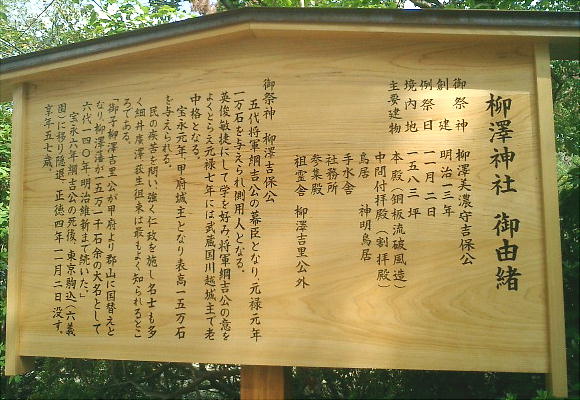 柳澤神社 御由緒
御祭神 柳澤美濃守吉保公
創建 明治一三年
例祭日 一一月二日
境内地 一五八三坪
主要建物 本殿(銅板流破風造)
中間付拝殿(割拝殿)
鳥居 神明鳥居
手水舎
社務所
参集殿
祖霊舎 柳澤吉里公外
御祭神 柳澤吉保公
五代将軍綱吉公の幕臣となり、元禄元年
一万石を与えられ側用人となる。
英俊敏捷にして学を好み、将軍綱吉公の意を
よくとらえ元禄七年には武蔵国川越城主で老
中格となる。
宝永元年、甲府城主となり表高一五万石
を与えられる。
民の疾苦を問い強く仁政を施し名士も多
く細井廣澤、荻生徂徠は最もよく知られるとこ
ろである。
「御子柳澤吉里公が甲府より郡山に国替えと
なり、柳澤藩が一五万一千石余の大名として
六代一四〇年、明治維新まで続いた。」
宝永六年綱吉公の死後、東京駒込(六義
園)に移り隠退、正徳四年一一月二日没す。
享年五七歳。